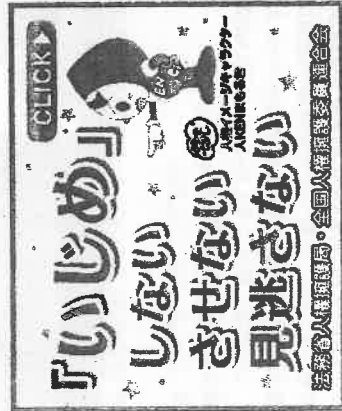 『いじめ』
しない
させない
見逃さない
CLICK
人権イメージキャラクター
人KENまもる君
法務省人権擁護局・全国人権擁護委員連合会